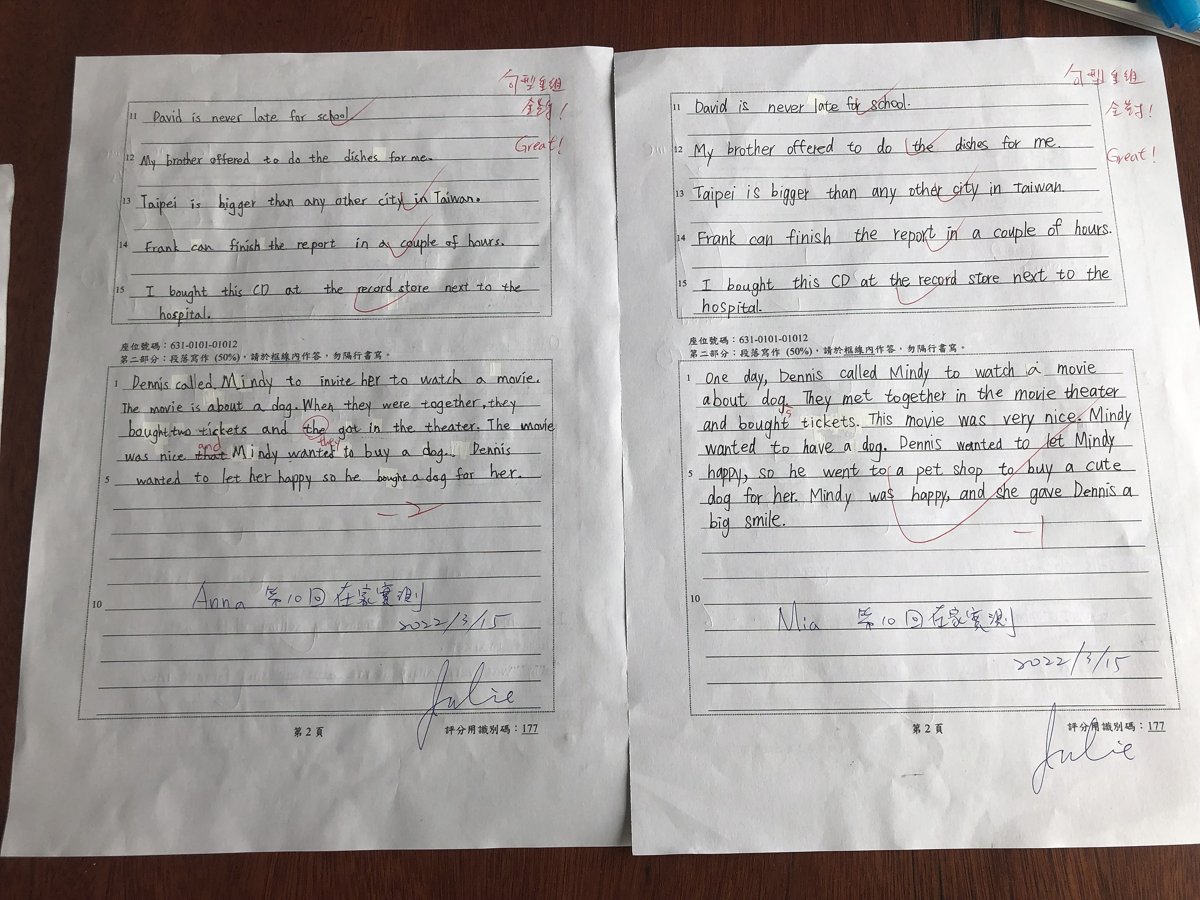 句型重組
全對!
Great!
11 David is never late for school
12 My brother offered to do the dishes for me.
13 Taipei is bigger than any other city in Taiwan.
14 Frank can finish the report in a couple of hours.
15 I bought this CD at the record store next to the
hospital.
座位號碼：631-0101-01012
第二部分：段落寫作 (50%)，請於框線內作答，勿隔行書寫。
1 Dennis called Mindy to invite her to watch a movie.
The movie is about a dog. When they were together, they
bought two tickets and the got in the theater. The movie
they
and
was nice that Mindy wanted to buy a dog. Dennis
5 wanted to let her happy so he bought a dog for her.
-2
10 Anna 第10回在家實測
2022/3/15
Julie
第2頁
評分用識別碼：177
句型重組
全對!
Great!
11 David is never late for school.
12 My brother offered to do the dishes for me.
13 Taipei is bigger than any other city in taiwan.
14 Frank can finish the report in a couple of hours.
15 I bought this CD at the record store next to the
hospital.
座位號碼：631-0101-01012
第二部分：段落寫作 (50%)，請於框線內作答，勿隔行書寫。
1 One day, Dennis called Mindy to watch a movie
about dog. They met together in the movie theater
s
and bought tickets. This movie was very nice. Mindy
wanted to have a dog. Dennis wanted to let Mindy
5 happy, so he went to a pet shop to buy a cute
dog for her. Mindy was happy, and she gave Dennis a
big smile.
-1
10
Mia 第10回在家實測
2022/3/15
第2頁
評分用識別碼：177
Julie